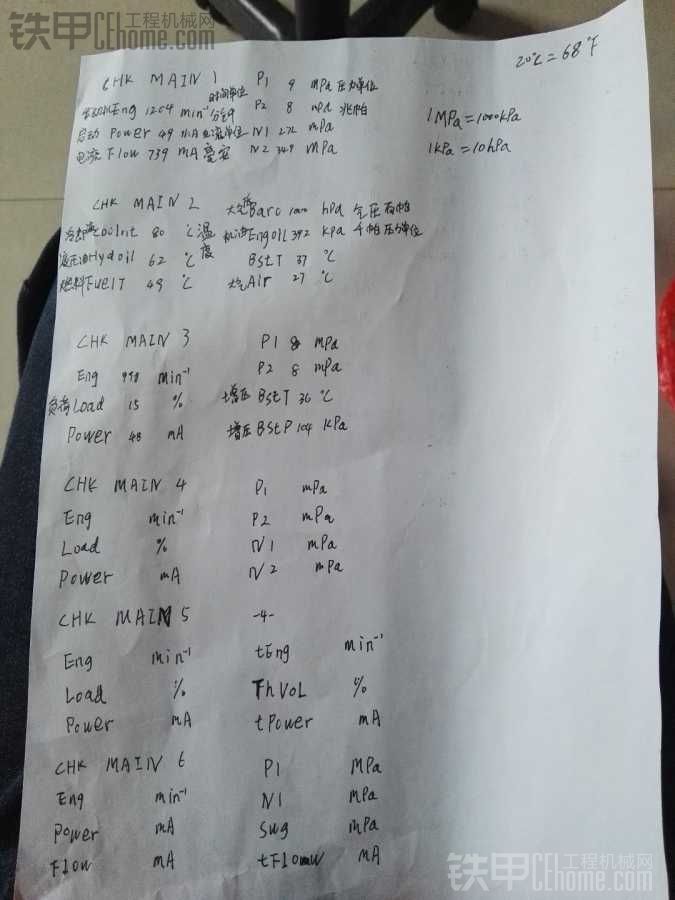 铁甲工程机械网
CEhome.com
20℃=68℉
CHK MAIN 1 P1 9 MPa 压力单位
时间单位
Eng 1204 min⁻¹ 分钟 P2 8 mpa 兆帕
启动 Power 49 mA 电流单位 N1 272 mPa
电流 Flow 739 mA 毫安 N2 349 MPa
1MPa=1000kPa
1kPa=10hPa
CHK MAIN 2 大气 Baro 1000 hPa 气压 百帕
冷却 Coolnt 80 ℃ 温度 机油 Engoil 392 kpa 千帕 压力单位
液压油 Hydoil 62 ℃ BstT 37 ℃
燃料 FuelT 49 ℃ 大气 Air 27 ℃
CHK MAIN 3 P1 8 mPa
Eng 998 min⁻¹ P2 8 mPa
负荷 Load 15 % 增压 BstT 36 ℃
Power 48 mA 增压 BStP 104 KPa
CHK MAIN 4 P1 mPa
Eng min⁻¹ P2 mPa
Load % N1 mPa
Power mA N2 mPa
CHK MAIN 5 -4-
Eng min⁻¹ tEng min⁻¹
Load % ThVoL %
Power mA tPower mA
CHK MAIN 6 P1 MPa
Eng min⁻¹ N1 mPa
Power mA Swg mPa
Flow mA tFlow mA
铁甲工程机械网
CEhome.com